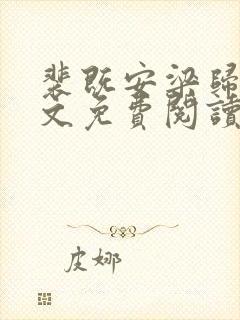 裴既安梁歸
文免費閱讀
皮娜